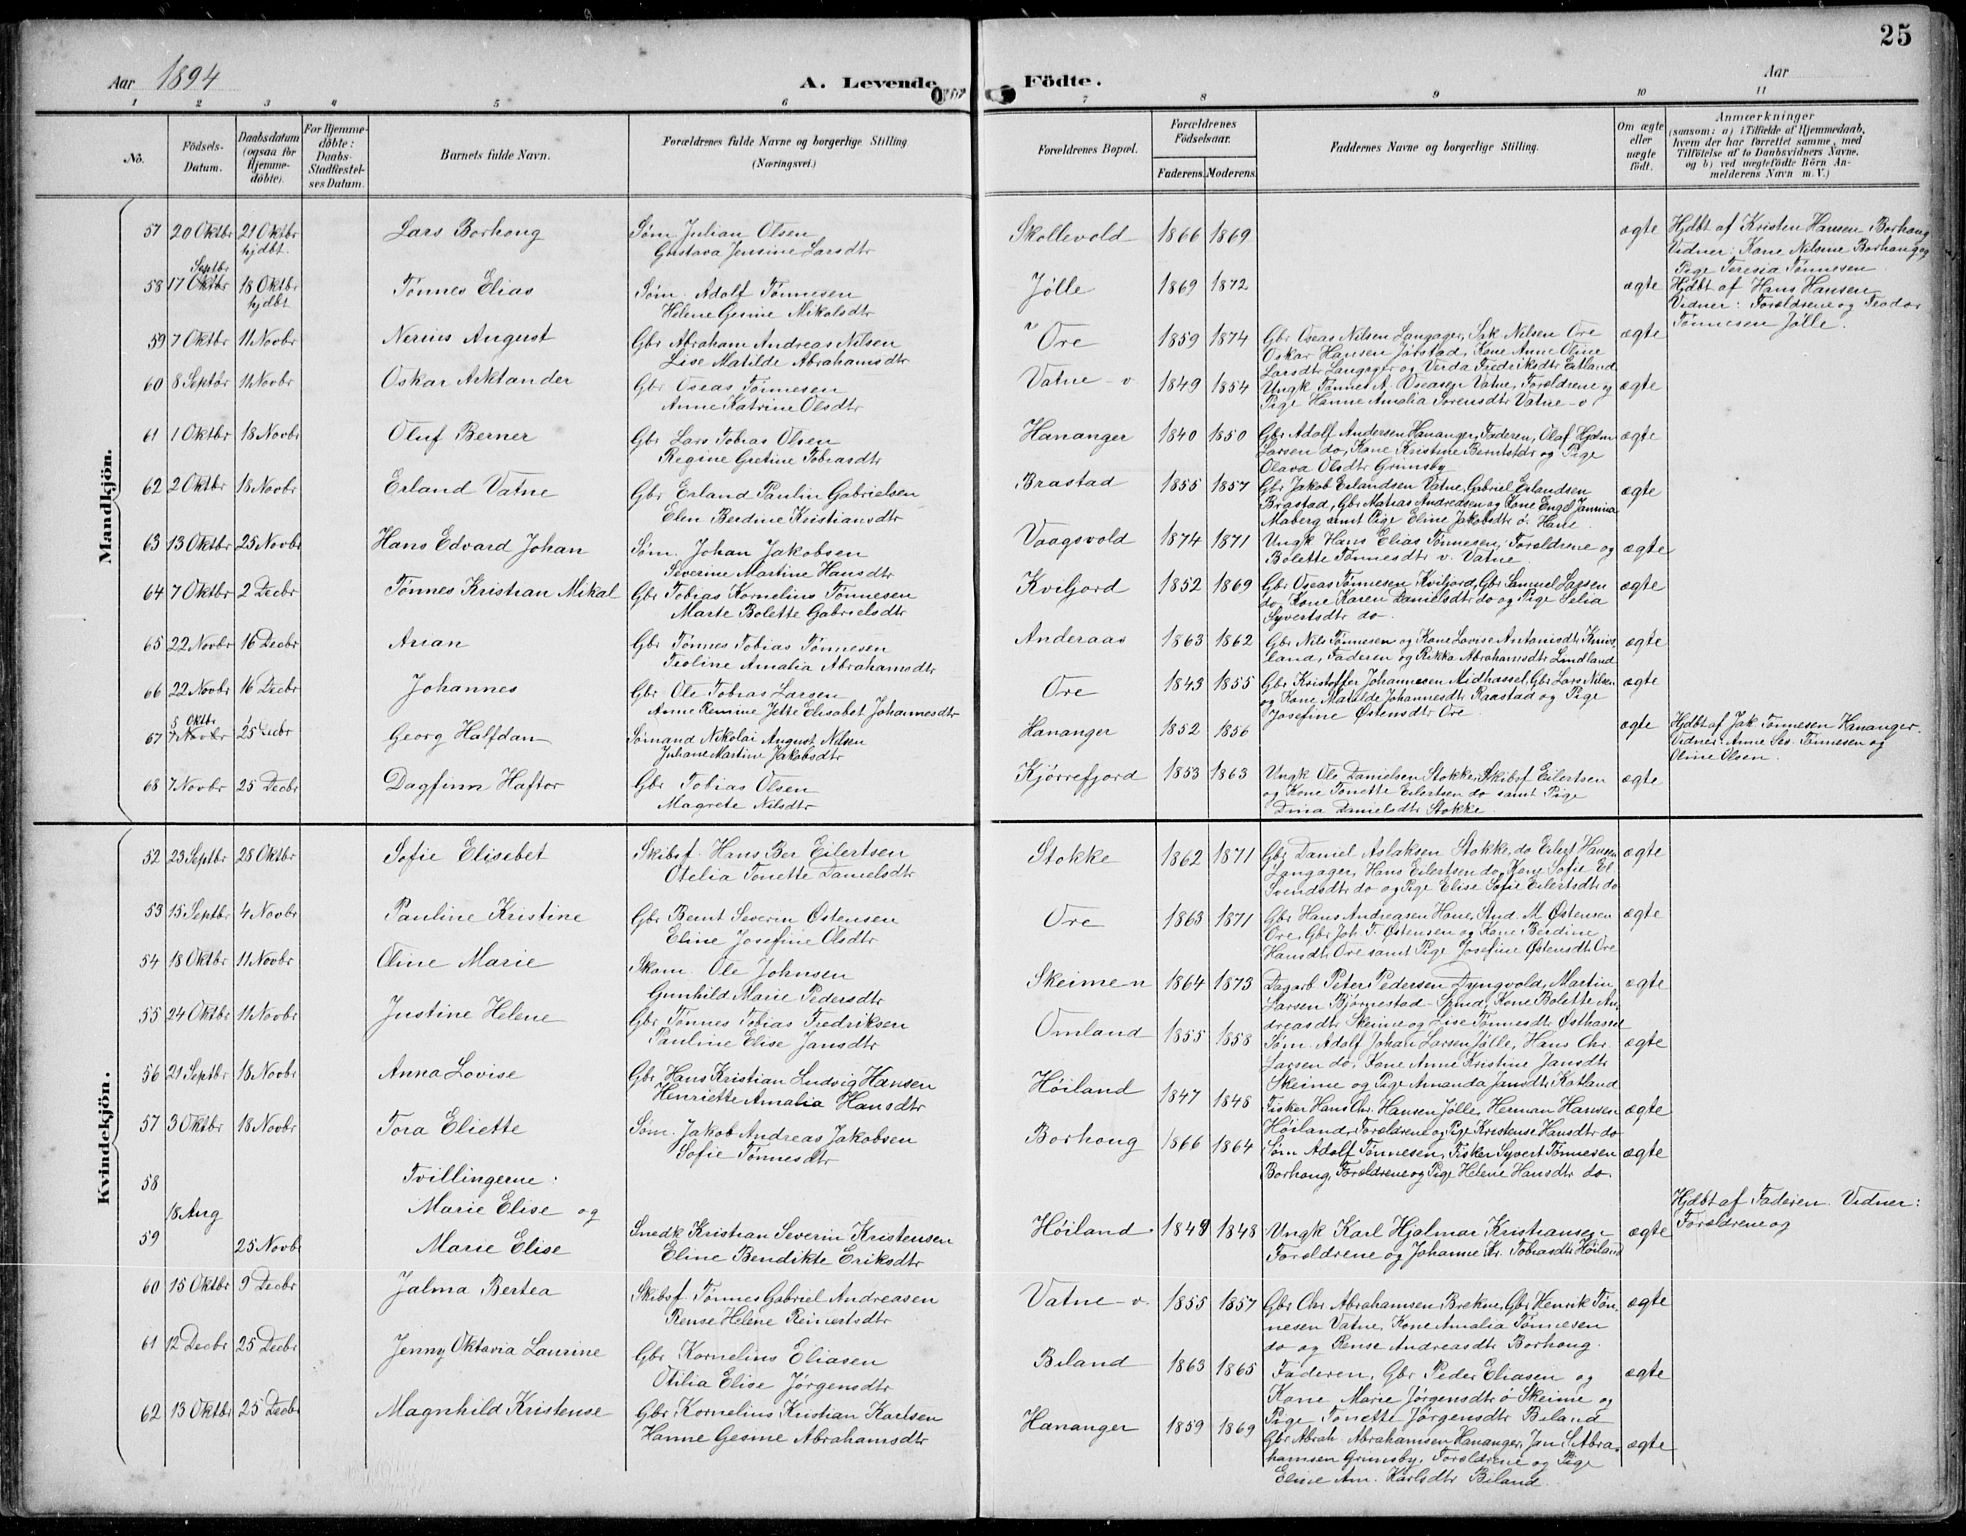 25
Aar 1894
A. Levende Födte.
Aar
1 2 3 4 5 6 7 8 9 10 11
No.
Födsels-Datum.
Daabsdatum (ogsaa for Hjemme-døbte).
For Hjemme-døbte: Daabs-Stadfæstel-ses Datum.
Barnets fulde Navn.
Forældrenes fulde Navne og borgerlige Stilling (Næringsvei.)
Forældrenes Bopæl.
Forældrenes Födselsaar.
Faderens. Moderens.
Faddernes Navne og borgerlige Stilling.
Om ægte eller uægte födt.
Anmærkninger
(saasom: a) i Tilfælde af Hjemmedaab, hvem der har forrettet samme, med Tilföielse af to Daabsvidners Navne, og b) ved uægtefödte Börn An-melderens Navn m. V.)
Mandkjön.
57 20 Oktbr 21 Oktbr hjdbt. Lars Borhong Søm. Julian Olsen Gustava Jensine Larsdtr Skollevold 1866 1869 ægte Hjdbt af Kristen Hansen Borhong Vidner: Kone Nilsine Borhaug og Pige Teresia Tønnesen
58 17 Septbr 18 Oktbr hjdbt Tønnes Elias Søm. Adolf Tønnesen Helene Gesine Nikolsdtr Jølle 1869 1872 ægte Hjdbt af Hans Hansen Vidner: Forældrene og Teodor Tønnesen Jølle.
59 7 Oktbr 11 Novbr Nerius August Gbr Abraham Andreas Nilsen Lise Matilde Abrahamsdtr Ore 1859 1874 Gbr Oseas Nilsen Langager, Isak Nilsen Ore Oskar Hansen Jørstad, Kone Anne Oline Larsdtr Langager og Verda Fredriksdtr Eitland ægte
60 8 Septbr 11 Novbr Oskar Arktander Gbr Oseas Tønnesen Anne Katrine Olsdtr Vatne-v. 1849 1854 Ungk Tønnes A. Oseasen Vatne, Forældrene og Pige Hanne Amalia Sorensdtr Vatne-v ægte
61 1 Oktbr 18 Novbr Oluf Berner Gbr Lars Tobias Olsen Regine Gretine Tobiasdtr Hananger 1840 1850 Gbr Adolf Andersen Hananger, Faderen, Olaf Hjalm Larsen do, Kone Kristine Berntsdtr og Pige Olava Olsdtr Grimsby ægte
62 2 Oktbr 18 Novbr Erland Vatne Gbr Erland Paulin Gabrielsen Elen Berdine Kristiansdtr Brastad 1855 1857 Gbr Jakob Erlandsen Vatne, Gabriel Erlandsen Brastad, Gbr Matias Andreasen og Kone Eng S Janina Maberg samt Pige Eline Jakobsdtr ø. Hane ægte
63 13 Oktbr 25 Novbr Hans Edvard Johan Søm. Johan Jakobsen Severine Martine Hansdtr Vaagsvold 1874 1871 Ungk Hans Elias Tønnesen, Forældrene og Bolette Tønnesdtr v. Vatne ægte
64 7 Oktbr 2 Decbr Tønnes Kristian Mikal Gbr Tobias Kornelius Tønnesen Marte Bolette Gabrielsdtr Kviljord 1852 1869 Gbr Oseas Tønnesen Kviljord, Gbr Samuel Larsen do, Kone Karen Danielsdtr do og Pige Selia Syvertsdtr do. ægte
65 22 Novbr 16 Decbr Arian Gbr Tønnes Tobias Tønnesen Teoline Amalia Abrahamsdtr Anderaas 1863 1862 Gbr Nils Tønnesen og Kone Lovise Antonsdtr land, Faderen og Rikka Abrahamsdtr Lindland ægte
66 22 Novbr 16 Decbr Johannes Gbr Ole Tobias Larsen Anne Remine Jette Elisabet Johannesdtr Ore 1843 1855 Gbr Kristoffer Johannesen Midhassel, Gbr Lars Nilsen og Kone Matilde Johannesdtr Raastad og Pige Josefine Østensdtr Ore ægte
67 5 Oktbr 25 Decbr Georg Halfdan Sømand Nikolai August Nilsen Juliane Martine Jakobsdtr Hananger 1852 1856 ægte Hjdbt af Jak Tønnesen Hananger. Vidner: Anne Tønnesen og Oline Olsen.
68 7 Novbr 25 Decbr Dagfinn Haftor Gbr Tobias Olsen Magrete Nilsdtr Kjørrefjord 1853 1863 Ungk Ole Danielsen Stokke, Skibsf Eilertsen og Kone Tonette Eilertsen do samt Pige Dina Danielsdtr Stokke. ægte
Kvindekjön.
52 23 Septbr 28 Oktbr Sofie Elisebet Skibsf. Hans Ber Eilertsen Otelia Tonette Danielsdtr Stokke 1862 1871 Gbr Daniel Aslaksen Stokke, do Eilert Hansen Langager, Hans Eilertsen do, Kone Sofie El Svendsdtr do og Pige Elise Sofie Eilertsdtr do ægte
53 15 Septbr 4 Novbr Pauline Kristine Gbr Bernt Severin Østensen Eline Josefine Olsdtr Ore 1863 1871 Gbr Hans Andreasen Hane, Stud. M. Østensen Ore, Gbr Joh. T. Østensen og Kone Berdine Hansdtr Ore samt Pige Josefine Østensdtr Ore ægte
54 18 Oktbr 11 Novbr Oline Marie Skom. Ole Johnsen Gunhild Marie Pedersdtr Skeimen 1864 1873 Dagarb Peter Pedersen Dyngvold, Martin Larsen Bjørnestad-Spind, Kone Bolette An-dreasdtr Skeime og Lise Tønnesdtr Østhassel ægte
55 24 Oktbr 11 Novbr Justine Helene Gbr Tønnes Tobias Fredriksen Pauline Elise Jansdtr Omland 1855 1858 Søm. Adolf Johan Larsen Jølle, Hans Chr. Larsen do, Kone Anne Kristine Jansdtr Skeime og Pige Amanda Jansdtr Katland ægte
56 21 Septbr 18 Novbr Anna Lovise Gbr. Hans Kristian Ludvig Hansen Henriette Amalia Hansdtr Høiland 1847 1848 Fisker Hans Chr. Hansen Jølle, Herman Hansen Høiland, Forældrene og Pige Kristense Hansdtr do ægte
57 3 Oktbr 18 Novbr Tora Eliette Søm. Jakob Andreas Jakobsen Sofie Tønnesdtr Borhong 1866 1864 Søm Adolf Tønnesen, Fisker Syvert Tønnesen Borhong, Forældrene og Pige Helene Hansdtr do. ægte
58 18 Aug Tvillingerne: Marie Elise og Hjdbt af Faderen. Vidner: Forældrene og
59 25 Novbr Marie Elise Snedk Kristian Severin Kristensen Eline Bendikte Eriksdtr Høiland 1849 1848 Ungk Karl Hjalmar Kristiansen Forældrene og Johanne Kr. Tobiasdtr Høiland ægte
60 15 Oktbr 9 Decbr Jalma Bertea Skibsf. Tønnes Gabriel Andreasen Rense Helene Reinertsdtr Vatne-v. 1855 1857 Gbr Chr. Abrahamsen Brekne, Gbr Henrik Tøn-nesen Vatne, Kone Amalia Tønnesen do og Rense Andreasdtr Borhong. ægte
61 12 Decbr 25 Decbr Jenny Oktavia Laurine Gbr Kornelius Eliasen Otilia Elise Jørgensdtr Biland 1863 1865 Faderen, Gbr Peder Eliasen og Kone Marie Jørgensdtr ø Skeime og Pige Tonette Jørgensdtr Biland ægte
62 13 Oktbr 25 Decbr Magnhild Kristense Gbr. Kornelius Kristian Karlsen Hanne Gesine Abrahamsdtr Hananger 1859 1869 Gbr Abrah. Abrahamsen Hananger, Jan S. Abra-hamsen Grimsby, Forældrene og Pige Eline Am. Karlsdtr Biland. ægte